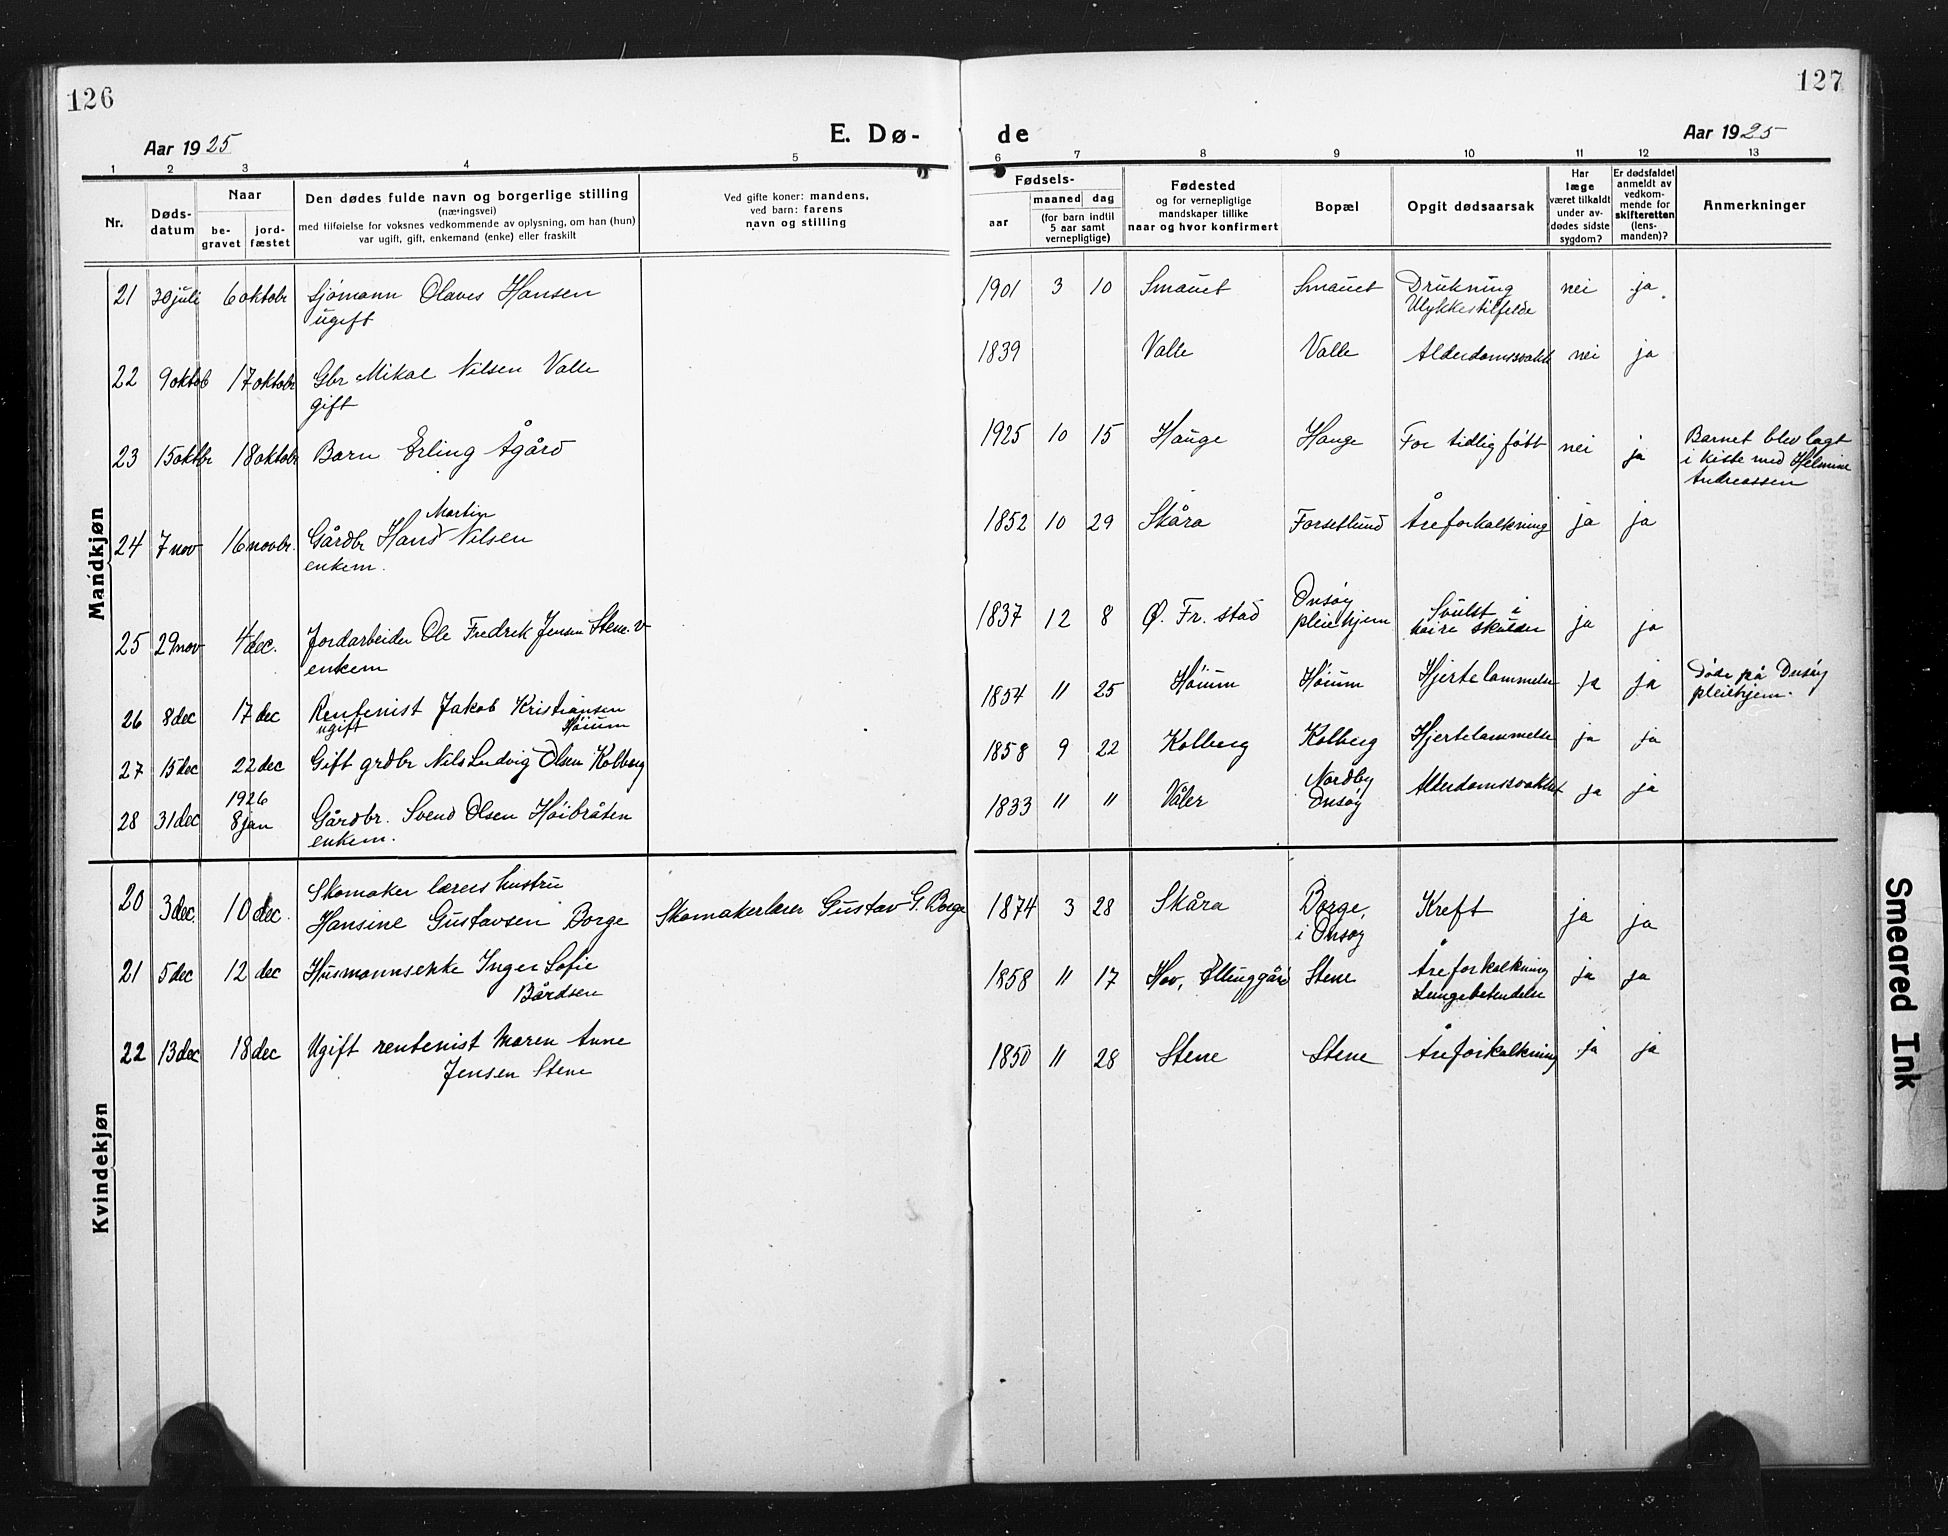 126
127
Aar 1925
E. Dø-
de
Aar 1925
1 2 3 4 5 6 7 8 9 10 11 12 13
Nr.
Døds-
datum
Naar
be-
gravet
jord-
fæstet
Den dødes fulde navn og borgerlige stilling
(næringsvei)
med tilføielse for voksnes vedkommende av oplysning, om han (hun)
var ugift, gift, enkemand (enke) eller fraskilt
Ved gifte koner: mandens,
ved barn: farens
navn og stilling
Fødsels-
aar
maaned dag
(for barn indtil
5 aar samt
vernepligtige)
Fødested
og for vernepligtige
mandskaper tillike
naar og hvor konfirmert
Bopæl
Opgit dødsaarsak
Har
læge
været tilkaldt
under av-
dødes sidste
sygdom?
Er dødsfaldet
anmeldt av
vedkom-
mende for
skifteretten
(lens-
manden)?
Anmerkninger
Mandkjøn
21 30 juli 6 oktobr Sjømann Olaves Hansen
ugift
1901 3 10 Smauet Smauet Drukning nei ja
Ulykkestilfelde
22 9 oktob 17 oktobr Gbr Mikal Nilsen Valle
gift
1839 Valle Valle Alderdomssvakh nei ja
23 15 oktbr 18 oktobr Barn Erling Ågård
1925 10 15 Hauge Hauge For tidlig født nei ja Barnet blev lagt
i kiste med Helmine
Andreassen
24 7 nov 16 novbr. Gårdbr Hans Martin Nilsen
enkem.
1852 10 29 Skåra Forsetlund Åreforkalkning ja ja
25 29 nov 4 dec. Jordarbeider Ole Fredrik Jensen Stene v
enkem
1837 12 8 Ø. Fr. stad Onsøy
pleiehjem Svulst i
høire skulder ja ja
26 8 dec 17 dec Rentenist Jakob Kristiansen
ugift Høium
1854 11 25 Høium Høium Hjertelammelse ja ja Døde på Onsøy
pleiehjem.
27 15 dec 22 dec Gift grdbr Nils Ludvig Olsen Kolberg
1858 9 22 Kolberg Kolberg Hjertelammelse ja ja
28 31 dec 1926
8 jan Gårdbr. Svend Olsen Høibråten
enkem.
1833 11 11 Våler Nordby
Onsøy Alderdomssvakhet ja ja
Kvindekjøn
20 3 dec. 10 dec. Skomaker lærers hustru
Hansine Gustavsen Borge Skomakerlærer Gustav G. Borge
1874 3 28 Skåra Borge,
i Onsøy Kreft ja ja
21 5 dec 12 dec Husmannsenke Inger Sofie
Bårdsen
1858 11 17 Hov, Elinggård Stene Åreforkalkning ja ja
Lungebetendelse
22 13 dec 18 dec Ugift rentenist Maren Anne
Jensen Stene
1850 11 28 Stene Stene Åreforkalkning ja ja
Smeared Ink